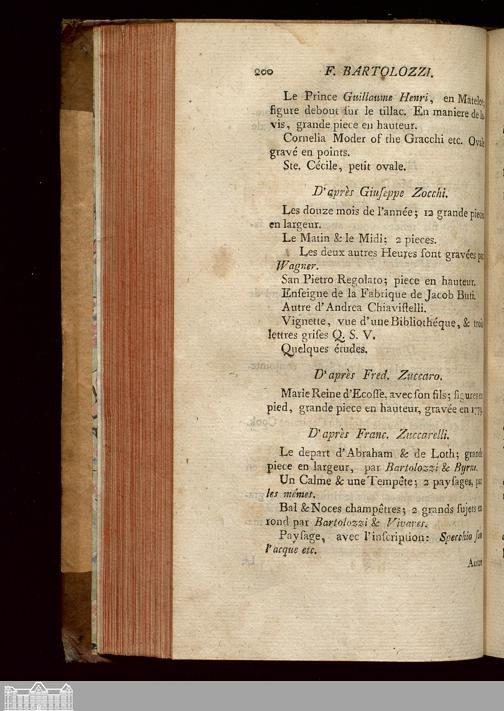 200 F. BARTOLOZZI.
Le Prince Guillaume Henri, en Matelot,
figure debout ſur le tillac. En maniere de la
vis, grande piece en hauteur.
Cornelia Moder of the Gracchi etc. Ovale
gravé en points.
Ste. Cécile, petit ovale.
D'après Giuſeppe Zocchi.
Les douze mois de l'année; 12 grande pieces
en largeur.
Le Matin & le Midi; 2 pieces.
Les deux autres Heures ſont gravées par
Wagner.
San Pietro Regolato; piece en hauteur.
Enſeigne de la Fabrique de Jacob Buti.
Autre d'Andrea Chiaviſtelli.
Vignette, vue d'une Bibliothéque, & trois
lettres griſes Q. S. V.
Quelques études.
D'après Fred. Zuccaro.
Marie Reine d'Ecoſſe, avec ſon fils; figures en
pied, grande piece en hauteur, gravée en
D'après Franc. Zuccarelli.
Le depart d'Abraham & de Loth; grande
piece en largeur, par Bartolozzi & Byrne.
Un Calme & une Tempête; 2 payſages, par
les mêmes.
Bal & Noces champêtres; 2 grands ſujets en
rond par Bartolozzi & Vivares.
Payſage, avec l'inſcription: Specchio ſon
l'acque etc.
Autre